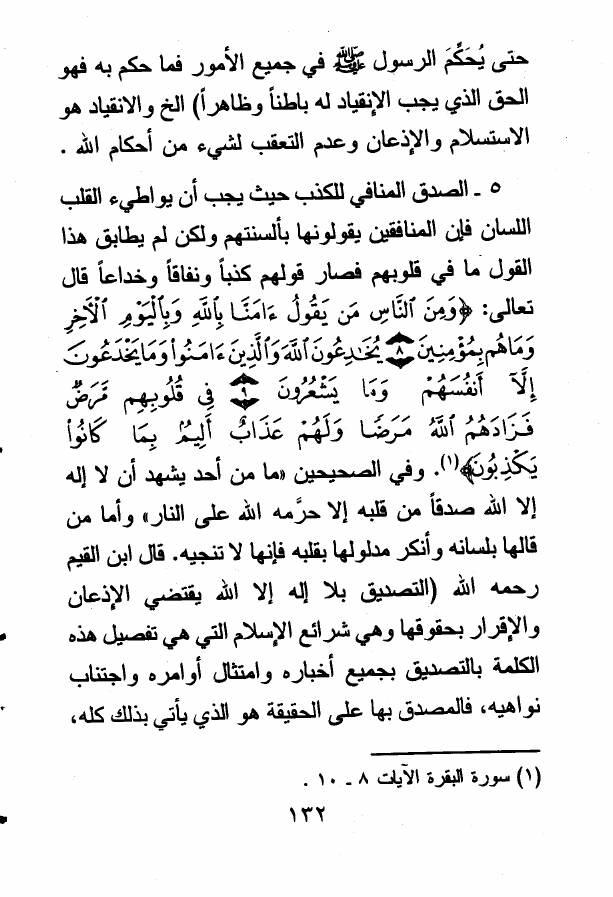 حتى يُحَكِّمَ الرسول ﷺ في جميع الأمور فما حكم به فهو
الحق الذي يجب الإنقياد له باطناً وظاهراً) الخ والانقياد هو
الاستسلام والإذعان وعدم التعقب لشيء من أحكام الله .
٥ - الصدق المنافي للكذب حيث يجب أن يواطيء القلب
اللسان فإن المنافقين يقولونها بألسنتهم ولكن لم يطابق هذا
القول ما في قلوبهم فصار قولهم كذباً ونفاقاً وخداعاً قال
تعالى: ﴿وَمِنَ ٱلنَّاسِ مَن يَقُولُ ءَامَنَّا بِٱللَّهِ وَبِٱلْيَوْمِ ٱلْأَخِرِ
وَمَاهُم بِمُؤْمِنِينَ ٨ يُخَٰدِعُونَ ٱللَّهَ وَٱلَّذِينَ ءَامَنُواْ وَمَا يَخْدَعُونَ
إِلَّآ أَنفُسَهُمْ وَمَا يَشْعُرُونَ ٩ فِى قُلُوبِهِم مَّرَضٌ
فَزَادَهُمُ ٱللَّهُ مَرَضًا وَلَهُمْ عَذَابٌ أَلِيمٌ بِمَا كَانُواْ
يَكْذِبُونَ﴾(١). وفي الصحيحين «ما من أحد يشهد أن لا إله
إلا الله صدقاً من قلبه إلا حرَّمه الله على النار» وأما من
قالها بلسانه وأنكر مدلولها بقلبه فإنها لا تنجيه. قال ابن القيم
رحمه الله (التصديق بلا إله إلا الله يقتضي الإذعان
والإقرار بحقوقها وهي شرائع الإسلام التي هي تفصيل هذه
الكلمة بالتصديق بجميع أخباره وامتثال أوامره واجتناب
نواهيه، فالمصدق بها على الحقيقة هو الذي يأتي بذلك كله،
(١) سورة البقرة الآيات ٨ - ١٠ .
١٣٢